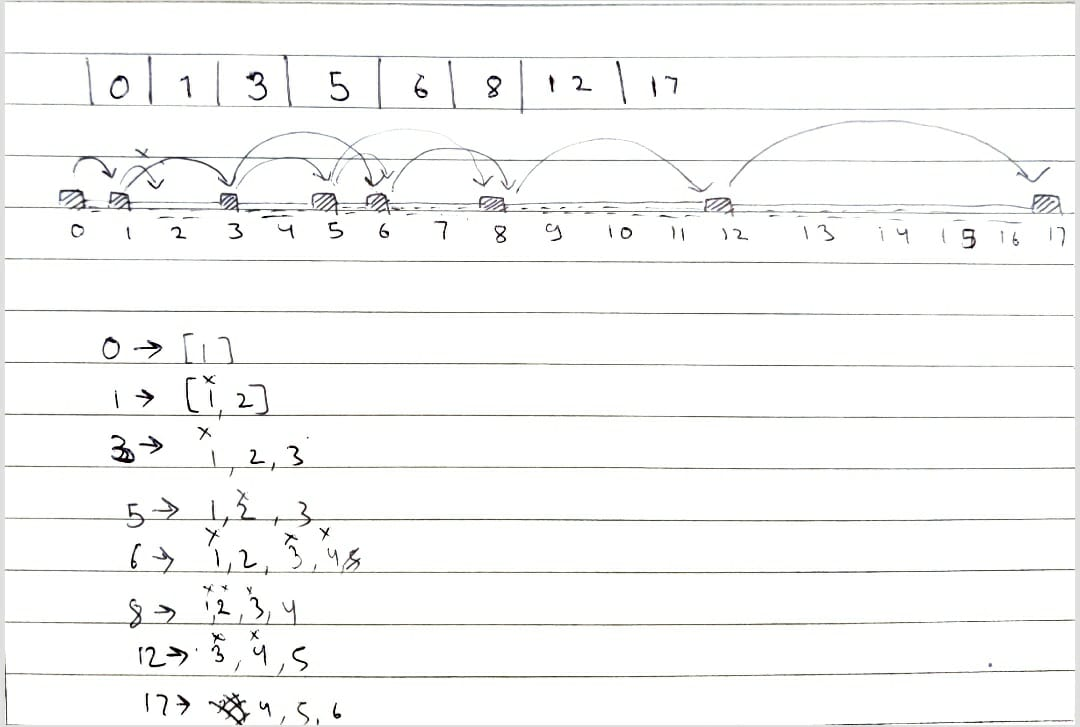 0 | 1 | 3 | 5 | 6 | 8 | 12 | 17
x
0 1 2 3 4 5 6 7 8 9 10 11 12 13 14 15 16 17
0 → [1]
x
1 → [1, 2]
x
3 → 1, 2, 3
x
5 → 1, 2, 3
x x x
6 → 1, 2, 3, 4
x x x
8 → 1, 2, 3, 4
x x
12 → 3, 4, 5
17 → 4, 5, 6